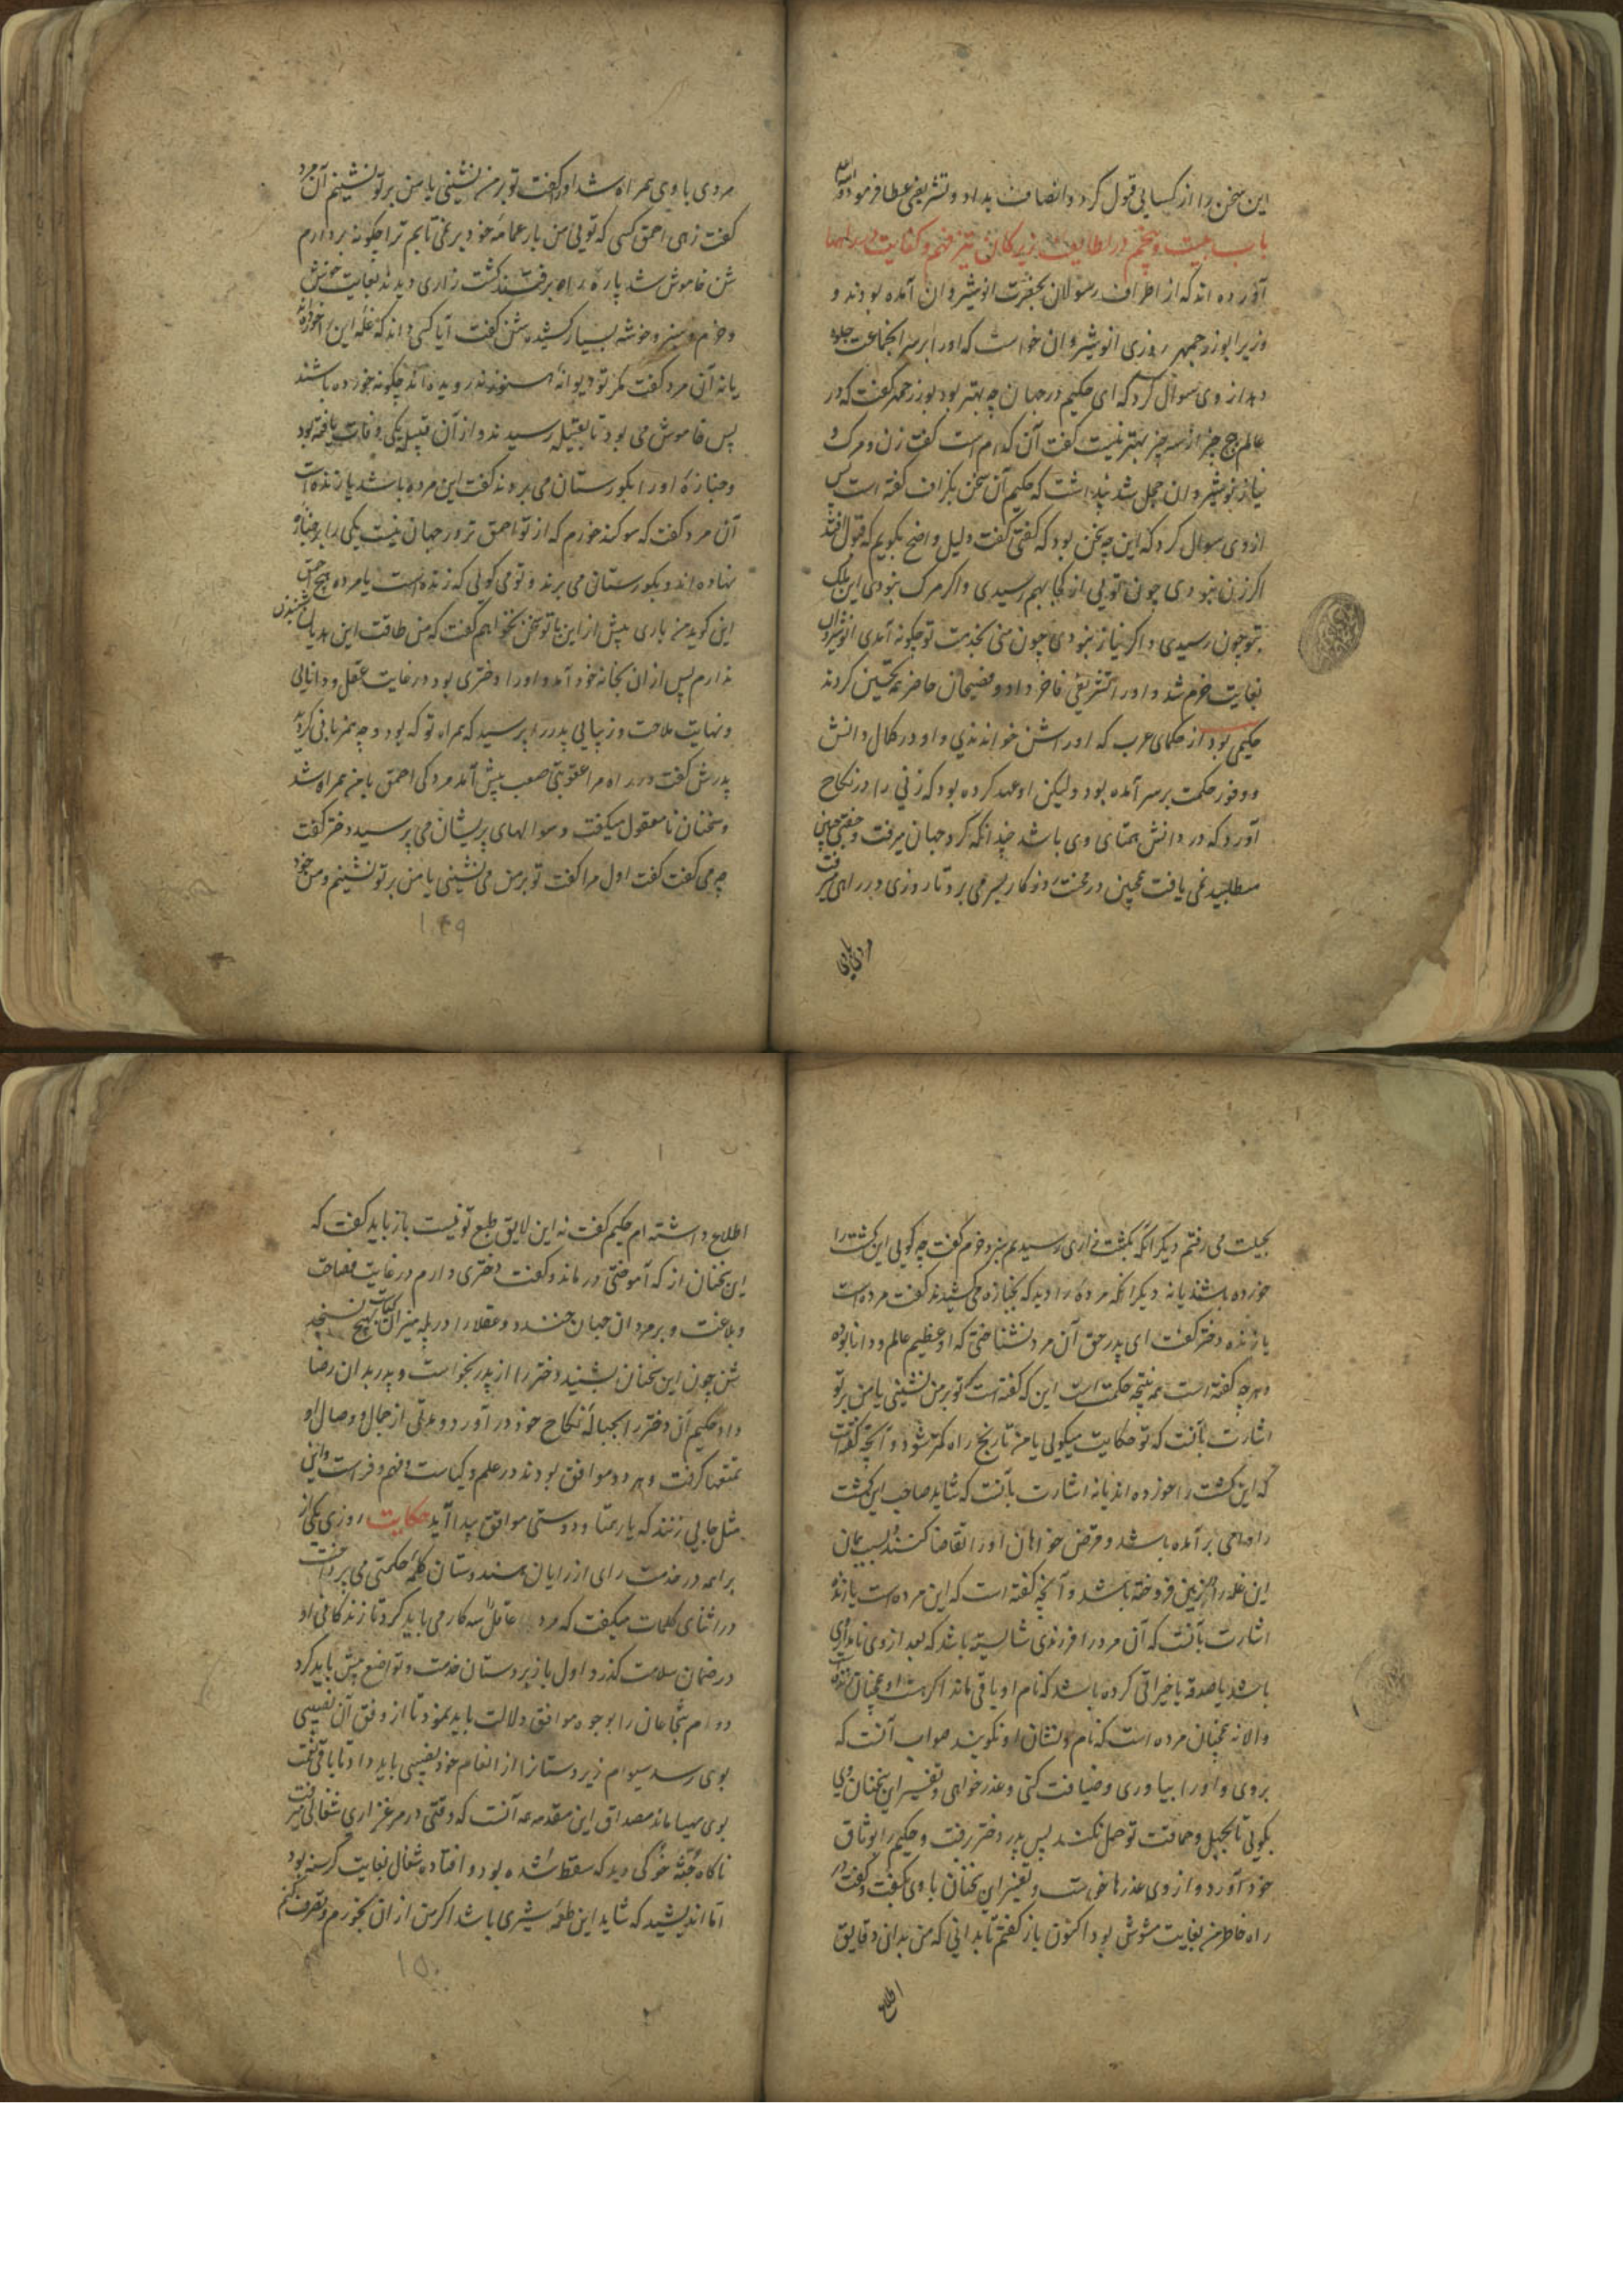 این سخن را از کسایی قبول کرد و انصاف بداد و تشریفی عطا فرمود
باب بیست و پنجم در لطایف زیرکان تیزفهم و کفایت
آورده اند که از اطراف رسولان بحضرت انوشیروان آمده بودند و
وزیر ابوزرجمهر روزی انوشیروان خواست که او را بر سر انجماعت جلوه
دهد از وی سوال کرد که ای حکیم در جهان چه بهتر بود بوزرجمهر گفت که در
عالم هیچ چیز از سه چیز بهتر نیست گفت آن کدام است گفت زن و مرک و
نیاز نوشیروان خجل شد پنداشت که حکیم آن سخن بگزاف گفته است پس
ازوی سوال کرد که این چه سخن بود که گفتی گفت دلیل واضح بگویم که قبول افتد
اکر زن نبودی چون تویی از کجا بهم رسیدی و اکر مرک نبودی این ملک
بتو چون رسیدی و اکر نیاز نبودی چون منی بخدمت تو چکونه آمدی انوشیروان
بغایت خرم شد و او را تشریفی فاخر داد و فصیحان حاضر همه تحسین کردند
حکیمی بود از حکمای عرب که او را شن خواندندی و او در کمال دانش
و وفور حکمت بر سر آمده بود ولیکن او عهد کرده بود که زنی را در نکاح
آورد که در دانش همتای وی باشد چندانکه کرد جهان میرفت و جفتی چنین
مطلبید نمی یافت همچنین در محنت روزکار بسر می برد تا روزی در راهی میرفت
مردی با وی
مردی با وی همراه شد او را گفت تو بر من نشینی یا من بر تو نشینم آن مرد
گفت زهی احمق کسی که تویی من بار عمامه خود بر نمی تابم ترا چکونه بردارم
شن خاموش شد پاره راه برفتند کشت زاری دیدند بغایت خوش
و خرم و سبز و خوشه بسیار کشیده شن گفت آیا کسی داند که غله این را خورده اند
یا نه آن مرد گفت مکر تو دیوانه هنوز ندرویده اند چکونه خورده باشند
پس خاموش می بود تا بقبیله رسیدند و از آن قبیله یکی وفات یافته بود
و جنازه او را بکورستان می بردند گفت این مرده باشد یا زنده است
آن مرد گفت که سوکند خورم که از تو احمق تر در جهان نیست یکی را بر جنازه
نهاده اند و بکورستان می برند و تو می کویی که زنده است یا مرده هیچ احمق
این کوید من باری بیش از این با تو سخن نخواهم گفت که من طاقت این هذیان شنیدن
ندارم پس از ان بخانه خود آمد و او را دختری بود در غایت عقل و دانایی
و نهایت ملاحت و زیبایی پدر را پرسید که همراه تو که بود و چه همزبانی کردید
پدرش گفت در راه مرا عقوبتی صعب پیش آمد مردکی احمق با من همراه شد
و سخنان نامعقول میکفت و سوالهای پریشان می پرسید دختر گفت
چه می گفت گفت اول مرا گفت تو بر من می نشینی یا من بر تو نشینم و من خود
۱۴۹
بحیلت می رفتم دیکر آنکه بکشت زاری رسیدیم سبز و خرم گفت چه کویی این کشت را
خورده باشند یا نه دیکر آنکه مرده را دید که بجنازه می کشیدند گفت مرده است
یا زنده دختر گفت ای پدر حق آن مرد نشناختی که او عظیم عالم و دانا بوده
و هرچه گفته است همه نتیجه حکمت است این که گفته است تو بر من نشینی یا من بر تو
اشارت بآنست که تو حکایت میکویی یا من تا رنج راه کمتر شود و آنچه گفته است
که این کشت را خورده اند یا نه اشارت بآنست که شاید صاحب این کشت
را وامی بر آمده باشد و قرض خواهان او را تقاضا کنند بسبب آن
این غله را فروخته باشد و آنچه گفته است که این مرده است یا زنده
اشارت بآنست که آن مرد را فرزندی شایسته باشد که بعد از وی نامداری
باشد یا صدقه یا خیراتی کرده باشد که نام او باقی ماند اکر هست او همچنان زنده است
و الا نه همچنان مرده است که نام و نشان او نکویند صواب آنست که
بروی و او را بیاوری و ضیافت کنی و عذر خواهی و تفسیر این سخنان وی
بکویی تا بجهل و حماقت تو حمل نکند پس پدر دختر رفت و حکیم را بوثاق
خود آورد و از وی عذرها خواست و تفسیر این سخنان با وی بگفت و گفت در
راه خاطر من بغایت مشوش بود اکنون باز گفتم تا بدانی که من بدان دقایق
اطلاع
اطلاع داشته ام حکیم گفت نه این لایق طبع تو نیست باز باید گفت که
این سخنان از که آموختی در ماند و گفت دختری دارم در غایت فصاحت
و بلاغت و بر مردان جهان خندد و عقلا را در پله میزان کیاست بهیچ نسنجد
شن چون این سخنان بشنید دختر را از پدر بخواست و پدر بدان رضا
داد حکیم آن دختر را بحباله نکاح خود در آورد و مدتی از جمال و وصال او
تمتعها گرفت و هر دو موافق بودند در علم و کیاست و فهم و فراست و این
مثل جایی زنند که یار همتا و دوستی موافق پیدا آید حکایت روزی یکی از
براهمه در خدمت رای از رایان هندوستان کلمه حکمتی می پرداخت
در اثنای کلمات میکفت که مرد عاقل را سه کار می باید کرد تا زندکانی او
در ضمان سلامت گذرد اول با زبردستان خدمت و تواضع پیش باید کرد
دوم شجاعان را بوجوه موافق دلالت باید نمود تا از وفق آن نصیبی
بوی رسد سیوم زیر دستانرا از انعام خود نصیبی باید داد تا باقی نعمت
بوی مهیا ماند مصداق این مقدمه آنست که وقتی در مرغزاری شغالی میرفت
ناکاه جثه خوکی دید که سقط شده بود و افتاده شغال بغایت کرسنه بود
اما اندیشید که شاید این طعمه شیری باشد اکر من از ان بخورم و تصرف کنم
۱۵۰